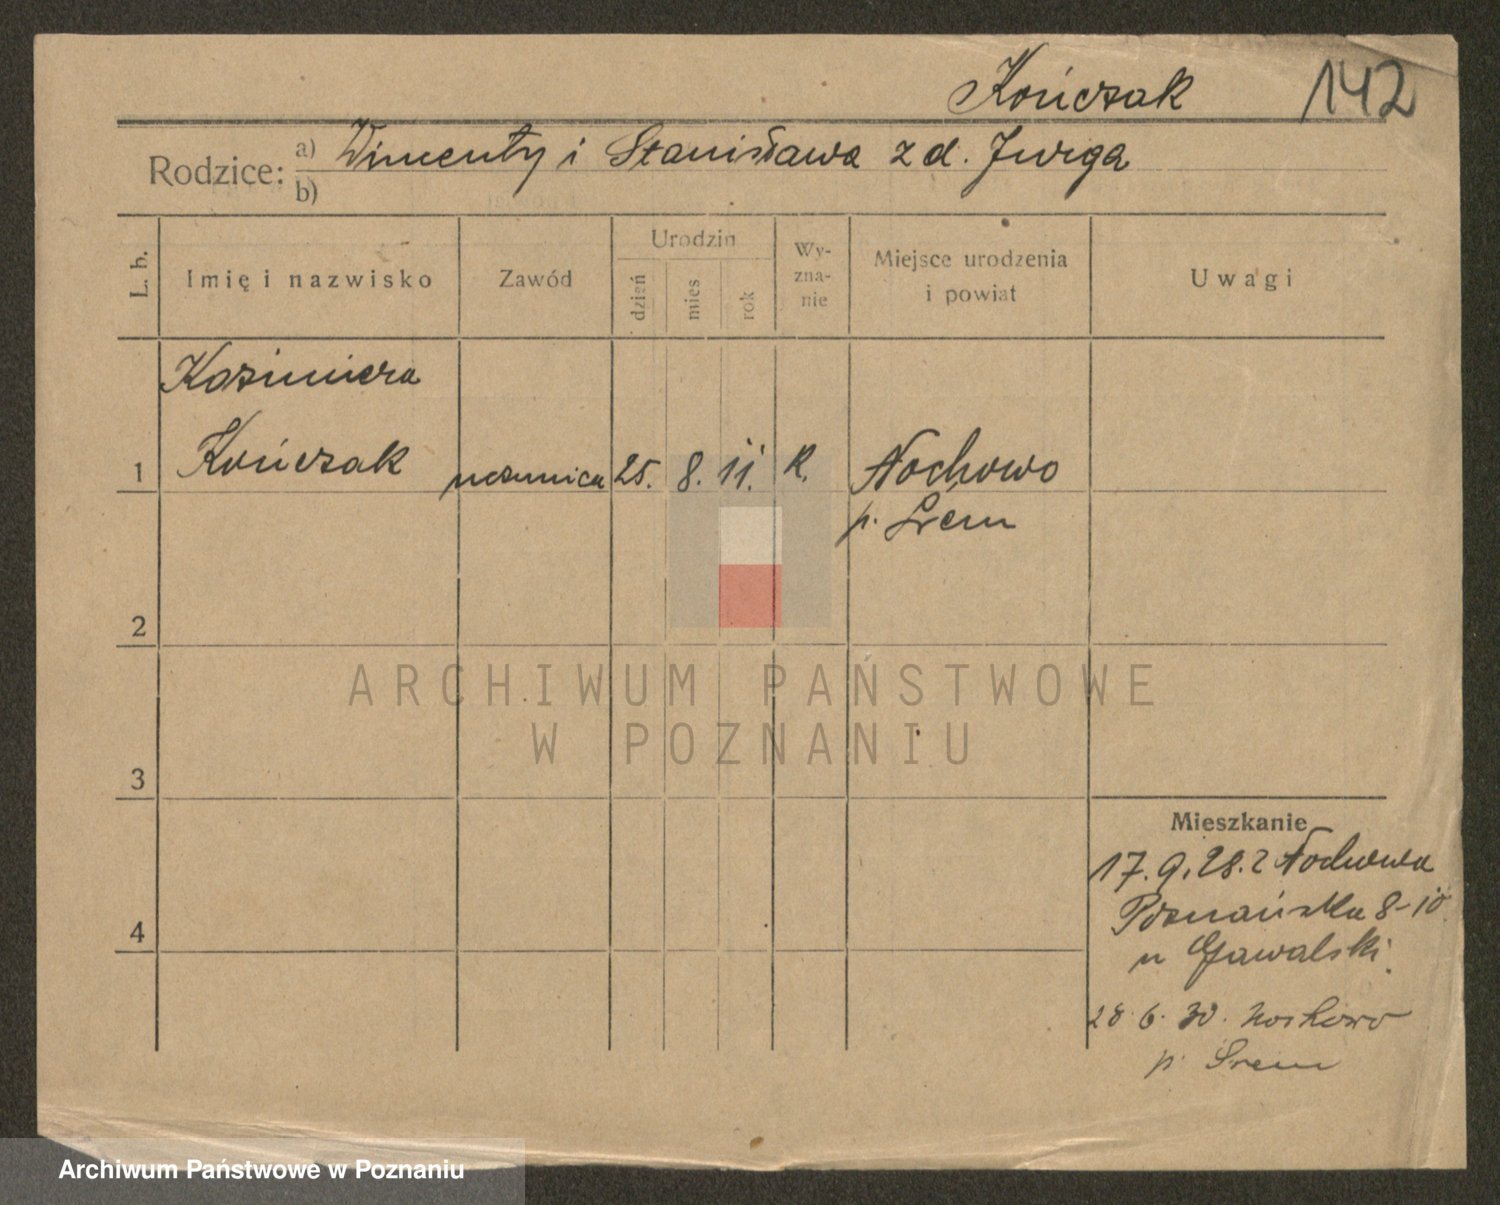 Kończak 142
Rodzice: a) Wincenty i Stanisława z d. Jurga
b)
L. b. Imię i nazwisko Zawód Urodzin dzień mies rok Wy-zna-nie Miejsce urodzenia i powiat Uwagi
Kazimiera
1 Kończak uczennica 25. 8. 11. k. Nochowo
p. Śrem
2
ARCHIWUM PAŃSTWOWE
W POZNANIU
3
Mieszkanie
17. 9. 28. z Nochowa
4 Poznańska 8-10
u Gawalski
28. 6. 30. Nochowo
p. Srem
Archiwum Państwowe w Poznaniu